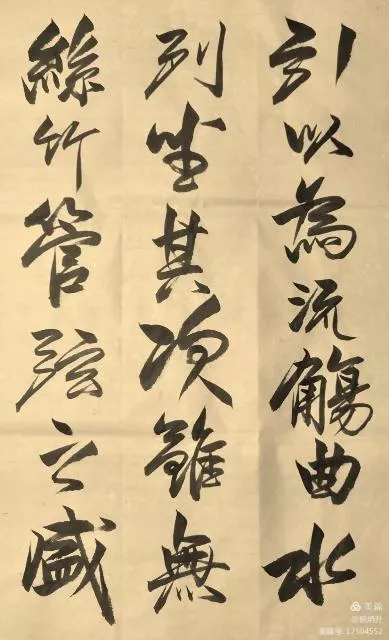 引以為流觴曲水
列坐其次雖無
絲竹管弦之盛
美篇
美篇号:17504552